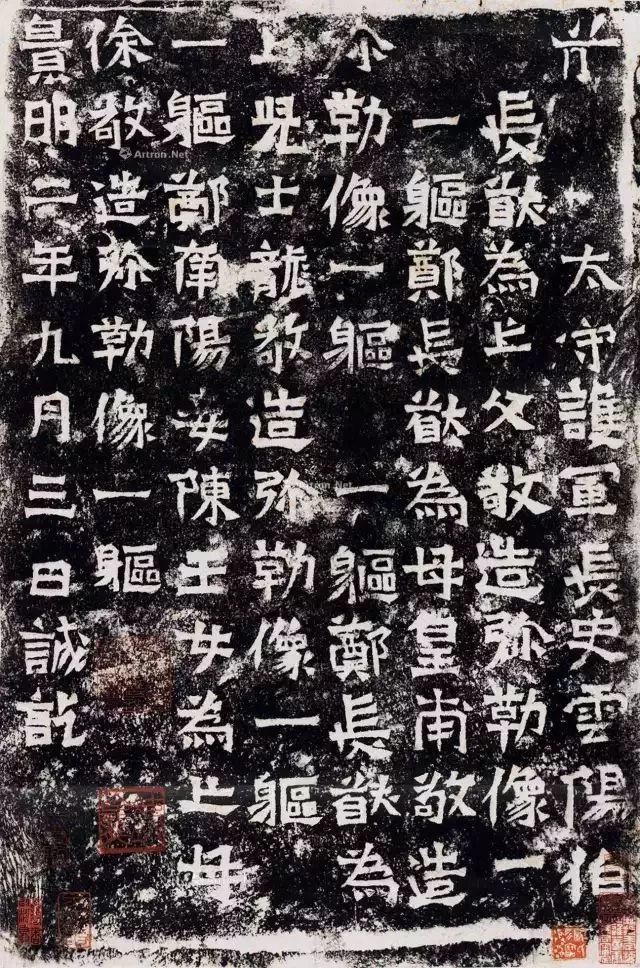 太守護軍長史雲陽伯
長猷為亡父敬造弥勒像一
一軀鄭長猷為母皇甫敬造
勒像一軀一軀鄭長猷為
亡兒士龍敬造弥勒像一軀
一軀鄭南陽妾陳玉女為亡母
徐敬造弥勒像一軀
景明二年九月三日誡訖
Artron.Net